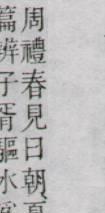 周禮春見日朝、夏
篇辨子胥驅水